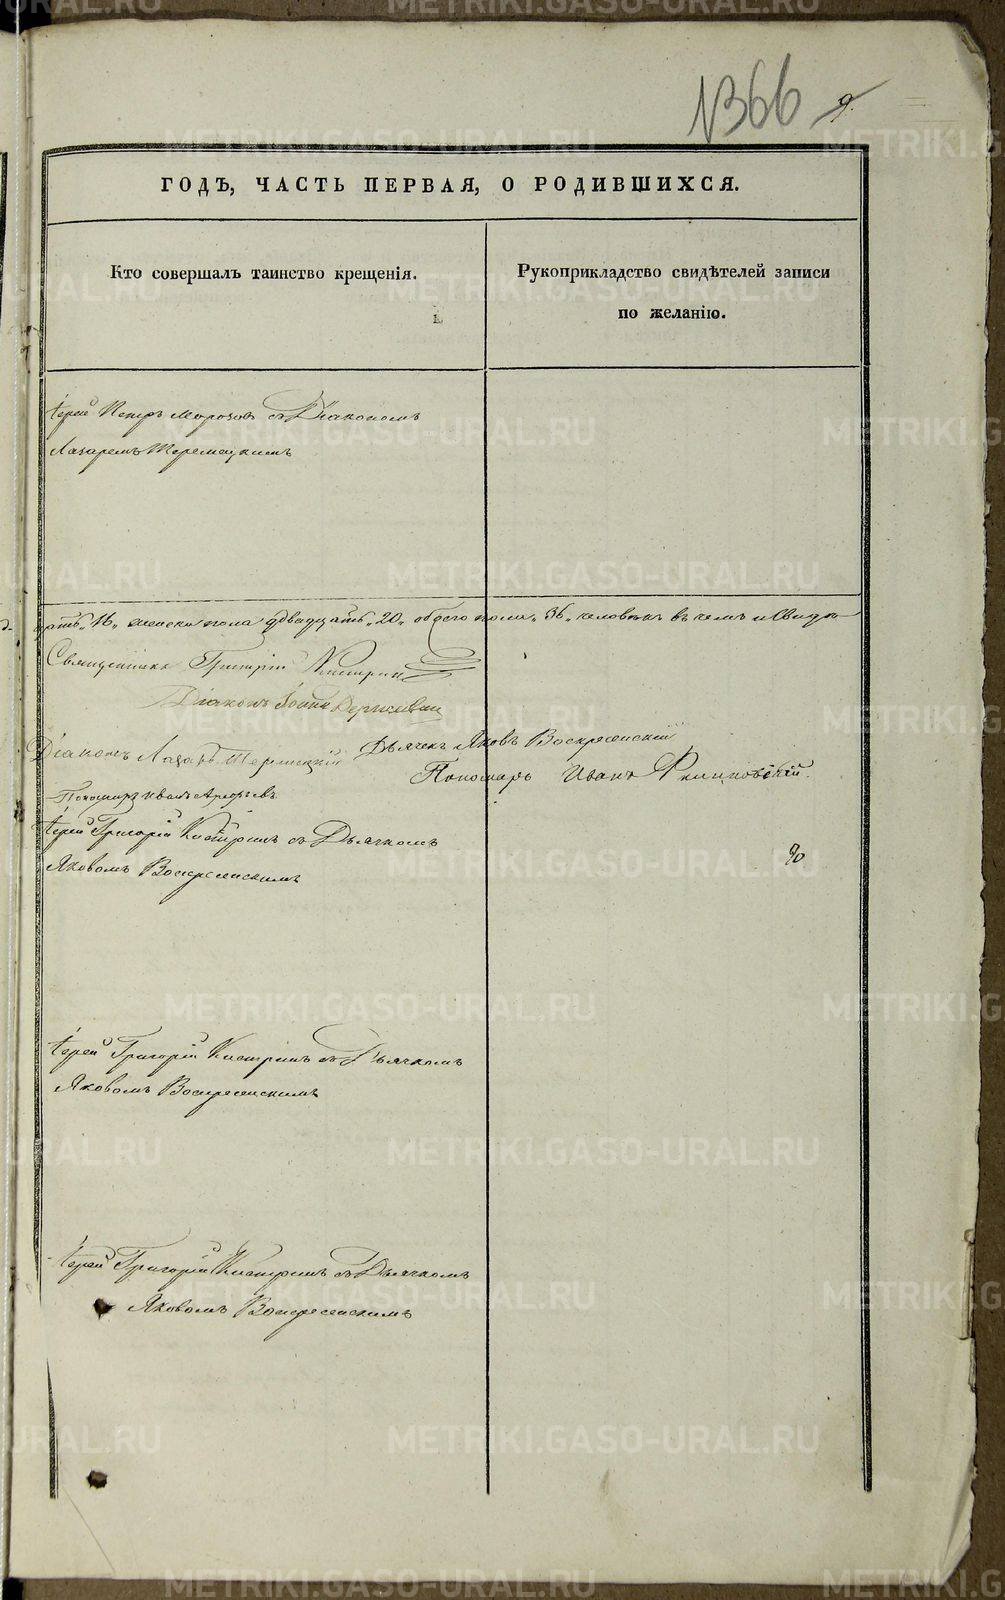 1366 9.
ГОДЪ, ЧАСТЬ ПЕРВАЯ, О РОДИВШИХСЯ.
Кто совершалъ таинство крещенія.
Рукоприкладство свидѣтелей записи
по желанію.
Іерей Петръ Морозовъ съ Діакономъ
Лазаремъ
„16„ женска пола двадцать „20„ обоего пола „36„ человѣкъ въ чемъ и
Священникъ Григорій
Діаконъ Іоаннъ
Діаконъ Лазарь
Дьячекъ Яковъ Воскресенскій
Пономарь Иванъ
Пономарь Иванъ Арефьевъ
Іерей Григорій съ Дьячкомъ
Яковомъ Воскресенскимъ
Іерей Григорій съ Дьячкомъ
Яковомъ Воскресенскимъ
Іерей Григорій съ Дьячкомъ
Яковомъ Воскресенскимъ
METRIKI.GASO-URAL.RU